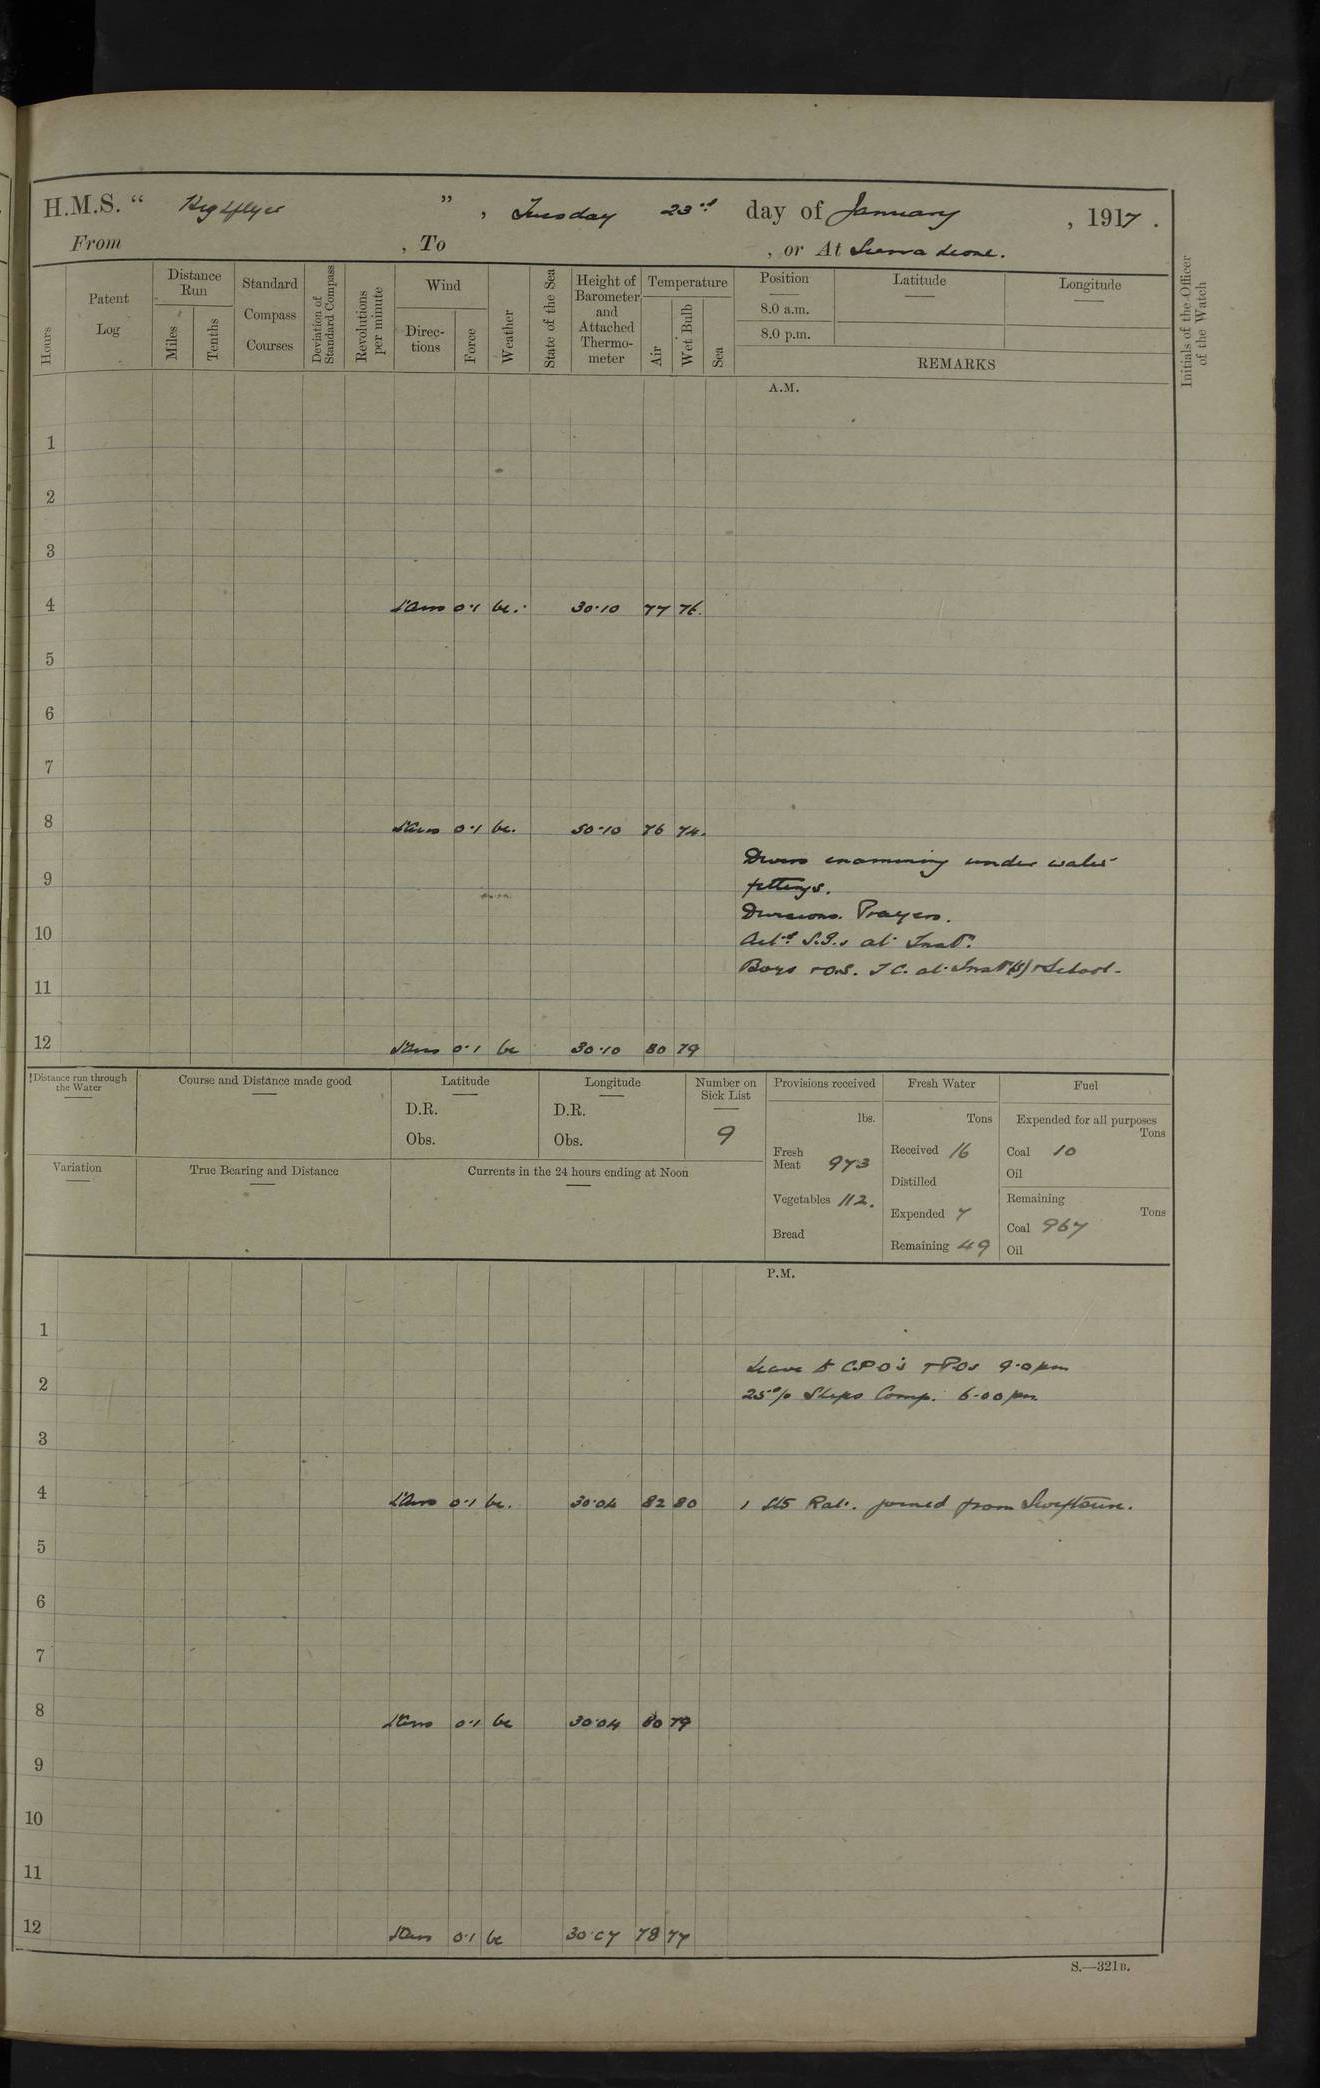 H.M.S. “ Highflyer ” , Tuesday 23rd day of January , 1917 .
From , To , or At Sierra Leone.
Hours
Patent Log
Distance Run
Miles
Tenths
Standard Compass Courses
Deviation of Standard Compass
Revolutions per minute
Wind
Direc-tions
Force
Weather
State of the Sea
Height of Barometer and Attached Thermo-meter
Temperature
Air
Wet Bulb
Sea
Position
8.0 a.m.
8.0 p.m.
Latitude
Longitude
REMARKS
Initials of the Officer of the Watch
A.M.
1
2
3
4 0·1 bc. 30·10 77 76.
5
6
7
8 0·1 bc. 30·10 76 74.
Divers examining under water
9 fittings.
Divisions. Prayers.
10 S.G.s at Inst.
Boys + O.S. T.C. at Inst (S) + School.
11
12 0·1 bc 30·10 80 79
Distance run through the Water
Course and Distance made good
Latitude
D.R.
Obs.
Longitude
D.R.
Obs.
Number on Sick List
9
Provisions received
lbs.
Fresh Meat 973
Vegetables 112.
Bread
Fresh Water
Tons
Received 16
Distilled
Expended 7
Remaining 49
Fuel
Expended for all purposes
Tons
Coal 10
Oil
Remaining
Tons
Coal 967
Oil
Variation
True Bearing and Distance
Currents in the 24 hours ending at Noon
P.M.
1
Leave to CPO's + POs 9·0 pm
2 25% Ships Comp. 6·00 pm
3
4 0·1 bc. 30·04 82 80 1 Rat. joined from Swiftsure.
5
6
7
8 0·1 bc 30·04 80 79
9
10
11
12 0·1 bc 30·07 78 77
S.—321B.